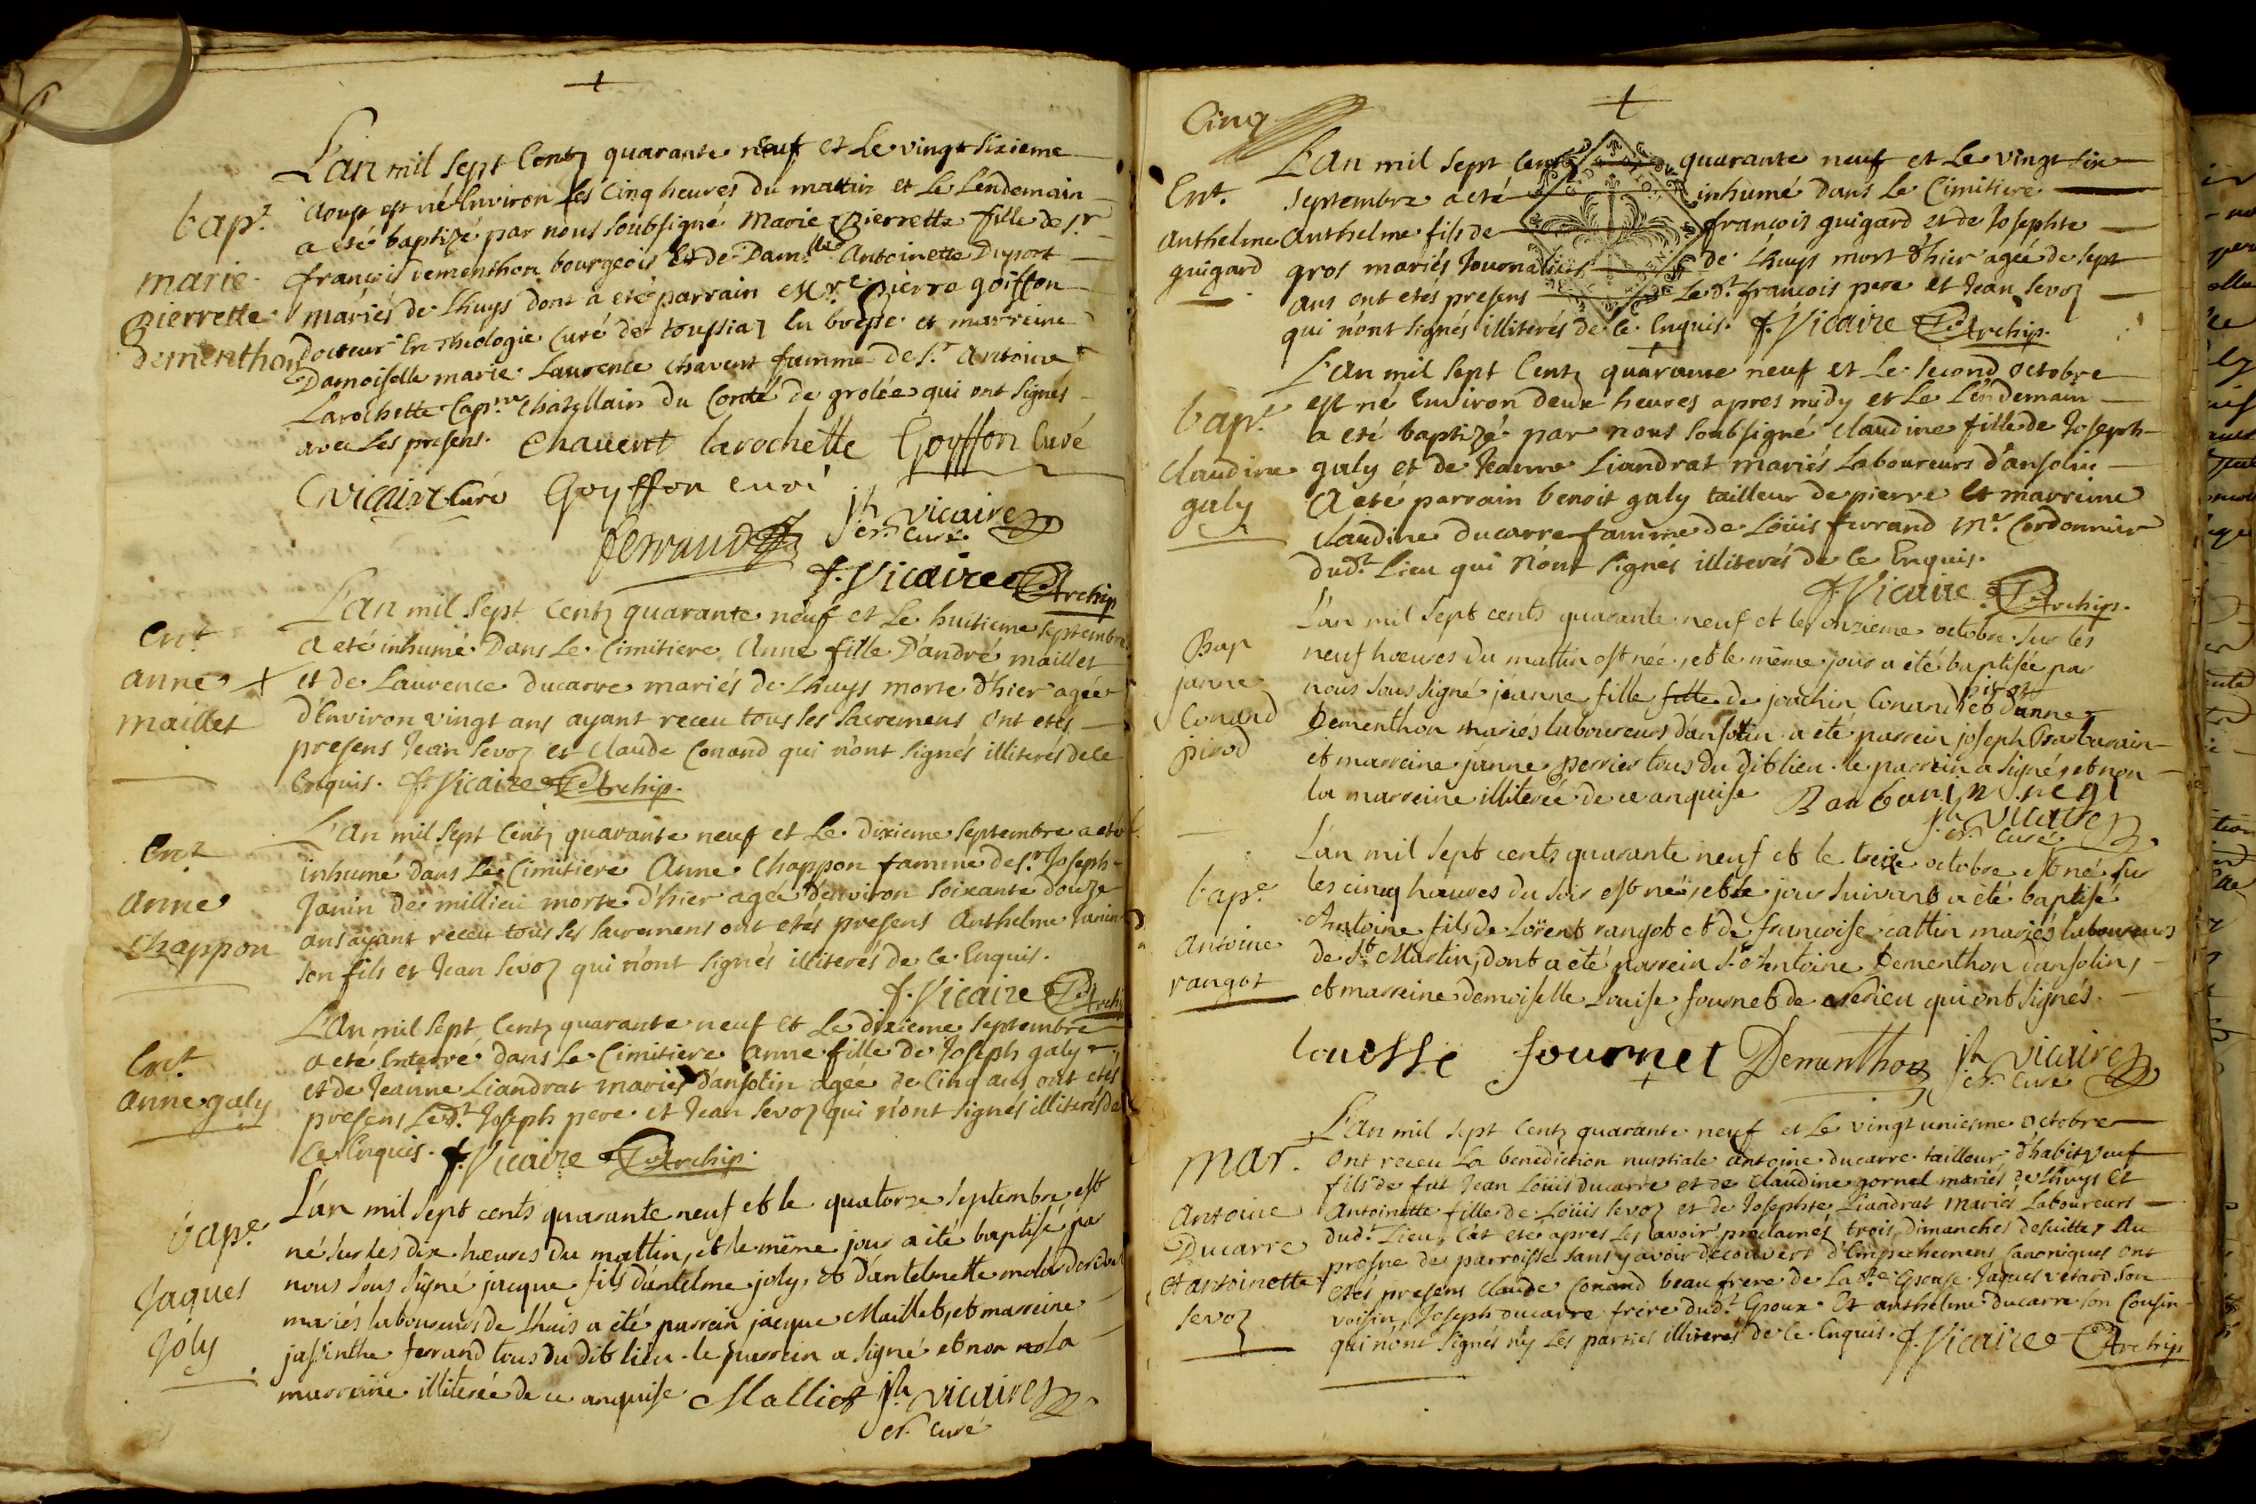 L'an mil sept Centz quarante neuf et Le vingt sixieme
aoust est né Environ les Cinq heures du mattin et Le Lendemain
bap.t
a eté baptizé par nous soubsigné Marie Pierrette fille de S.r
marie
françois dementhon bourgeois et de Dam.lle Antoinette Duport
pierrette
mariés de Lhuys dont a eté parrain M.re pierre goiffon
dementhon
docteur En Theologie Curé de toussiaz En bresse et marreine
Damoiselle marie Laurence chavent famme de S.r Antoine
Larochette Cap.ne chatellain du Conté de grolée qui ont signés
avec Les presens. Chavent larochette Goyffon Curé
C vicaire Curé Goyffon curé
ferrand jh vicaire er. curé
f. Vicaire Archip
L'an mil sept Centz quarante neuf et Le huitieme septembre
Ent.
a eté inhumé Dans Le Cimitiere Anne fille D'andre maillet
anne
et de Laurence ducarre mariés de Lhuys morte d'hier agée
maillet
d'Environ vingt ans ayant receu tous les sacremens ont etés
presens Jean sevoz et Claude Conand qui n'ont signés illiterés de ce
Enquis. f. Vicaire Archip.
L'an mil sept Centz quarante neuf et Le dixieme septembre a eté
Ent
inhumé dans Le Cimitiere Anne Chappon famme de S.r Joseph
anne
Janin de millieu morte d'hier agée d'environ soixante douze
chappon
ans ayant receu tous les sacremens ont etes presens Anthelme Janin
son fils et Jean sevoz qui n'ont signés illiterés de ce Enquis.
f. Vicaire Archip
L'an mil sept Centz quarante neuf et Le dixieme septembre
Ent.
a eté Enterré dans Le Cimitiere anne fille de Joseph galy
anne galy
et de Jeanne Liandrat mariés d'ansolin agée de Cinq ans ont etés
presens Led.t Joseph pere et Jean sevoz qui n'ont signés illiterés de
Ce Enquis. f. Vicaire Archip.
L'an mil sept cents quarante neuf et le quatorze septembre est
bap.e
né sur les dix heures du mattin, et le même jour a été baptisé par
Jaques
nous sous signé jacque fils d'antelme joly, et d'antelmette
Joly
mariés laboureurs de Lhuis a été parrein jacque Maillet, et marreine
jassinthe ferrand tous du dit lieu. le parrein a signé et non la
marreine illiterée de ce anquise Malliet jh vicaire
er. curé
Cinq
L'an mil sept Centz quarante neuf et Le vingt six
Ent.
septembre a eté inhumé dans Le Cimitiere
anthelme
Anthelme fils de françois guigard et de Josephte
guigard
gros mariés Journaliers de Lhuys mort d'hier agée de sept
ans ont etés presens Le d.t françois pere et Jean sevoz
qui n'ont signés illiterés de ce Enquis. f. Vicaire Archip.
L'an mil sept Centz quarante neuf et Le second octobre
est né Environ deux heures apres midy et Le Lendemain
bap.t
a eté baptizé par nous soubsigné Claudine fille de Joseph
Claudine
galy et de Jeanne Liandrat mariés Laboureurs d'ansolin
galy
a eté parrain benoit galy tailleur de pierre et marreine
claudine ducarre famme de Loüis ferrand M.e Cordonnier
dud.t Lieu qui n'ont signés illiterés de ce Enquis.
f. Vicaire Archip.
L'an mil sept cents quarante neuf et le onzieme octobre sur les
Bap
neuf heures du mattin est née, et le même jour a été baptisée par
janne
nous sous signé jéanne fille fille de joachin Conand pirod et d'anne
Conand
Dementhon mariés laboureurs d'ansolin a été parrein joseph Barbarain
pirod
et marreine janne perrier tous du dit lieu. le parrein a signé, et non
la marreine illiterée de ce anquise Barbarin
jh vicaire er. curé
L'an mil sept cents quarante neuf et le treize octobre est né sur
bap.e
les cinq heures du soir est né, et le jour suivant a été baptisé
Antoine
Antoine fils de Lorent rangot et de francoise cattin mariés laboureurs
rangot
de St Martin, dont a été parrein S.r Antoine Dementhon d'ansolin,
et marreine demoiselle Louise fournet de qui ont signés.
Louesse fournet Dementhon jh vicaire
er. curé
L'an mil sept Centz quarante neuf et Le vingt unieme octobre
mar.
ont receu La benediction nuptiale antoine ducarre tailleur d'habit veuf
fils de fut Jean Loüis ducarre et de Claudine gornel mariés de Lhuys et
Antoine
Antoinette fille de Loüis sevoz et de Josephte Liandrat mariés Laboureurs
Ducarre
dud.t Lieu, Cat eté apres Les avoir proclamés trois dimanches desuitte Au
et antoinette
prosne de parroisse sans y avoir decouvert d'Empechemens Canoniques ont
sevoz
etés presens Claude Conand beau frere de La d.e Epouse Jaques vetard son
voisin, Joseph ducarre frere dud.t Epoux et anthelme ducarre son Cousin
qui n'ont signés n'y Les parties illiterés de ce Enquis. f. Vicaire Archip